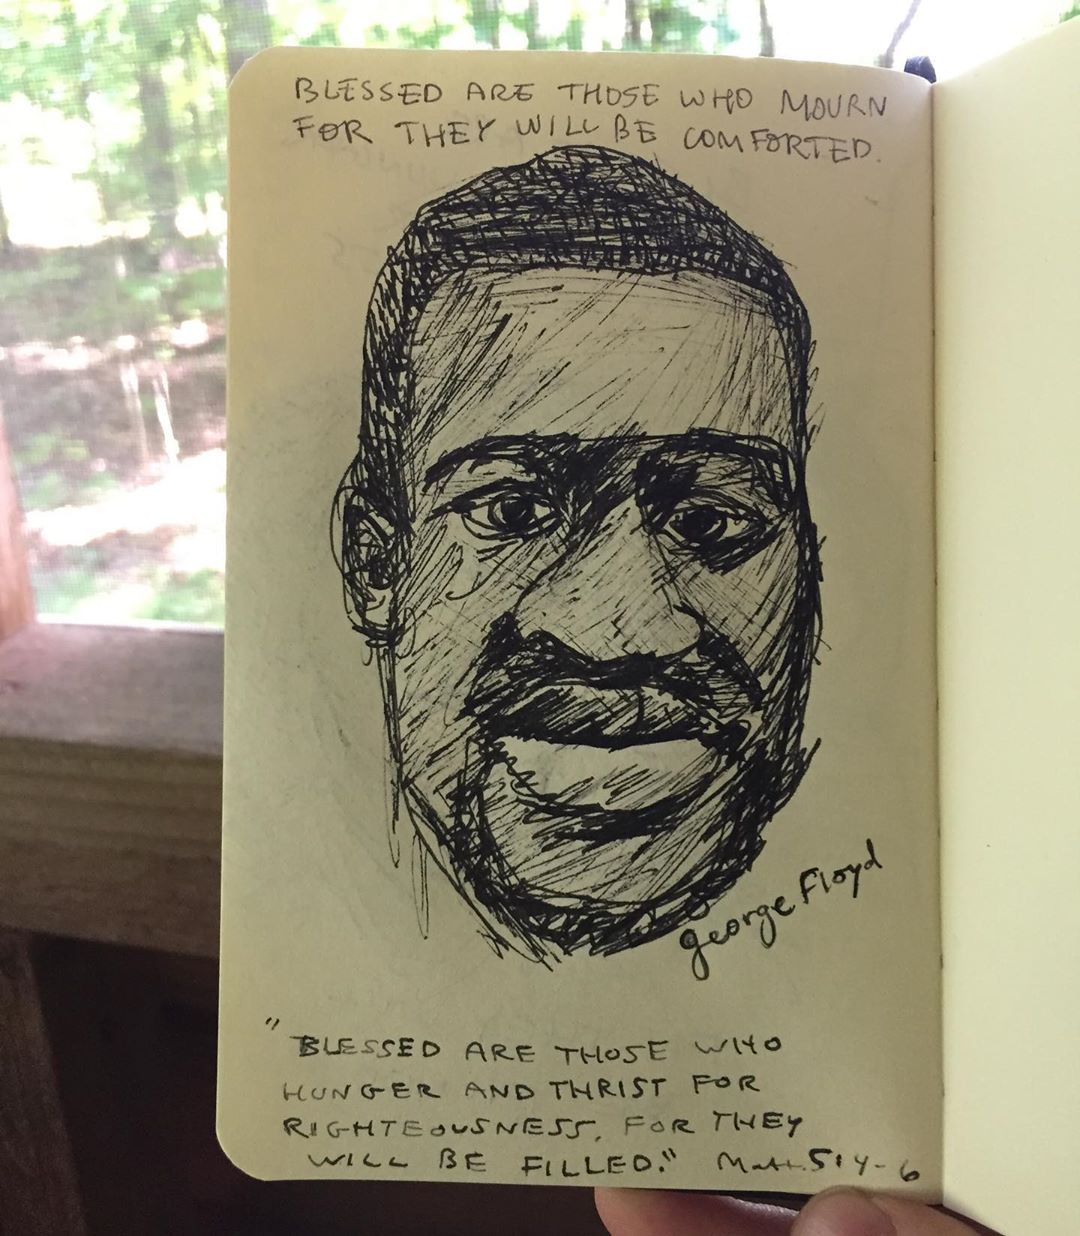 BLESSED ARE THOSE WHO MOURN
FOR THEY WILL BE COMFORTED.
George Floyd
"BLESSED ARE THOSE WHO
HUNGER AND THRIST FOR
RIGHTEOUSNESS, FOR THEY
WILL BE FILLED." Matt. 5:4-6